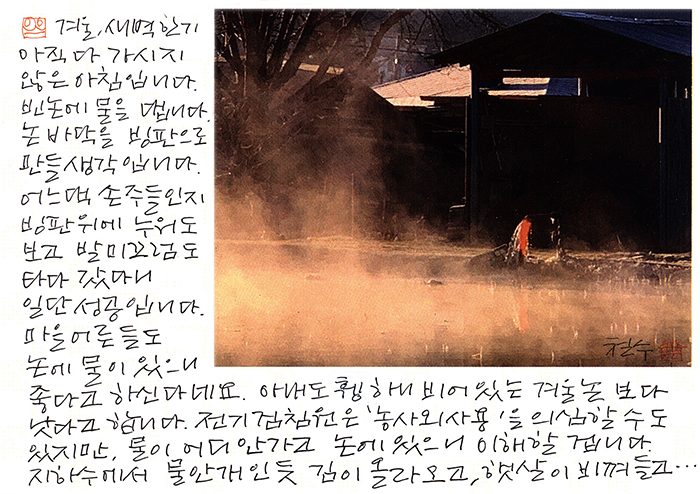 겨울, 새벽 한기
아직 다 가시지
않은 아침입니다.
빈논에 물을 댑니다.
논바닥을 빙판으로
만들 생각입니다.
어느댁 손주들인지
빙판위에 누워도
보고 발미끄럼도
타다 갔다니
일단 성공입니다.
마을어른들도
논에 물이 있으니
좋다고 하신다네요. 아내도 휑하니 비어있는 겨울논 보다
낫다고 합니다. 전기검침원은 '농사외사용'을 의심할 수도
있지만, 물이 어디안가고 논에있으니 이해할 겁니다.
지하수에서 물안개인듯 김이 올라오고, 햇살이 비껴들고…
철수